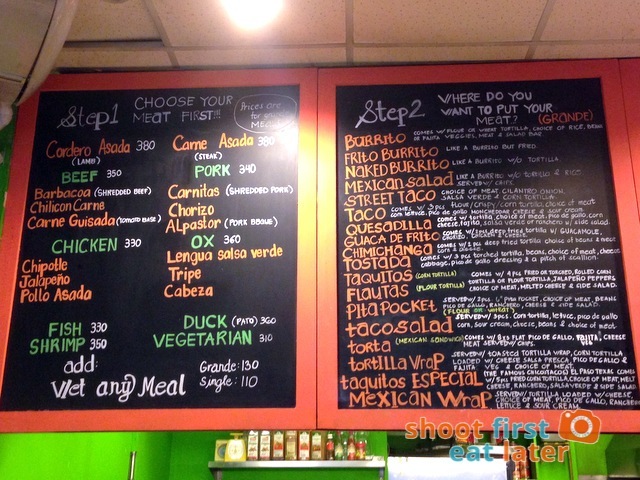 Step 1 CHOOSE YOUR MEAT FIRST!!!
Prices are for
Cordero Asada 380
(LAMB)
BEEF 350
Barbacoa (SHREDDED BEEF)
Chilicon Carne
Carne Guisada (TOMATO BASE)
CHICKEN 330
Chipotle
Jalapeño
Pollo Asada
FISH 330
SHRIMP 350
add:
Wet any Meal
Carne Asada 380
(STEAK)
PORK 340
Carnitas (SHREDDED PORK)
Chorizo
Alpastor (PORK
OX 360
Lengua salsa verde
Tripe
Cabeza
DUCK (PATO) 360
VEGETARIAN 310
Grande: 130
Single: 110
Step 2 WHERE DO YOU WANT TO PUT YOUR MEAT? (GRANDE)
BURRITO COMES W/ FLOUR OR WHEAT TORTILLA, CHOICE OF RICE, BEANS
VEGGIES, MEAT & SALAD BAR.
FRITO BURRITO LIKE A BURRITO BUT FRIED.
NAKED BURRITO LIKE A BURRITO W/O TORTILLA
MEXICAN SALAD LIKE A BURRITO W/O TORTILLA & RICE
SERVED W/ CHIPS.
STREET TACO CHOICE OF MEAT, CILANTRO ONION,
SALSA VERDE & CORN TORTILLA.
TACO COMES W/ 3 PCS flour/crispy/corn tortilla, choice of meat
QUESADILLA comes w/ tortilla, choice of meat, pico de gallo, corn
GUACA DE FRITO
CHIMICHANGA
TOSTADA comes w/ 3 pcs torched tortilla, beans, choice of meat, cheese
cabbage, pico de gallo dressing & a pitch of scallion.
TAQUITOS (CORN TORTILLA) COMES W/ 4 PCS FRIED OR TORCHED, ROLLED CORN
FLAUTAS (FLOUR TORTILLA) TORTILLA OR FLOUR TORTILLA, JALAPEÑO PEPPERS
CHOICE OF MEAT, MELTED CHEESE & SIDE SALAD.
Pita Pocket SERVED W/ 2 PCS PITA POCKET, CHOICE OF MEAT, BEANS
PICO DE GALLO, RANCHERO, CHEESE & SIDE SALAD.
(FLOUR OR WHEAT)
taco salad SERVED W/ 3 pcs. Corn tortilla, lettuce, pico de gallo
corn, sour cream, cheese, beans & choice of meat
torta (MEXICAN SANDWICH) COMES W/ FLAT PICO DE GALLO, FAJITA, CHEESE
MEAT SERVED W/ CHIPS.
tortilla wrap SERVED W/ TOASTED TORTILLA WRAP, CORN TORTILLA
LOADED W/ CHEESE SALSA FRESCA, PICO DE GALLO &
FAJITA VEG & CHOICE OF MEAT.
taquitos ESPECIAL (THE FAMOUS CHICOTACOS) EL PASO TEXAS COMES
W/ 5 PCS FRIED CORN TORTILLA, CHOICE OF MEAT, MELT
CHEESE, RANCHERO, SALSA VERDE & SIDE SALAD
MEXICAN WRAP SERVED W/ TORTILLA LOADED W/ CHEESE,
CHOICE OF MEAT, PICO DE GALLO, RANCHERO
LETTUCE & SOUR CREAM
shoot first
eat later